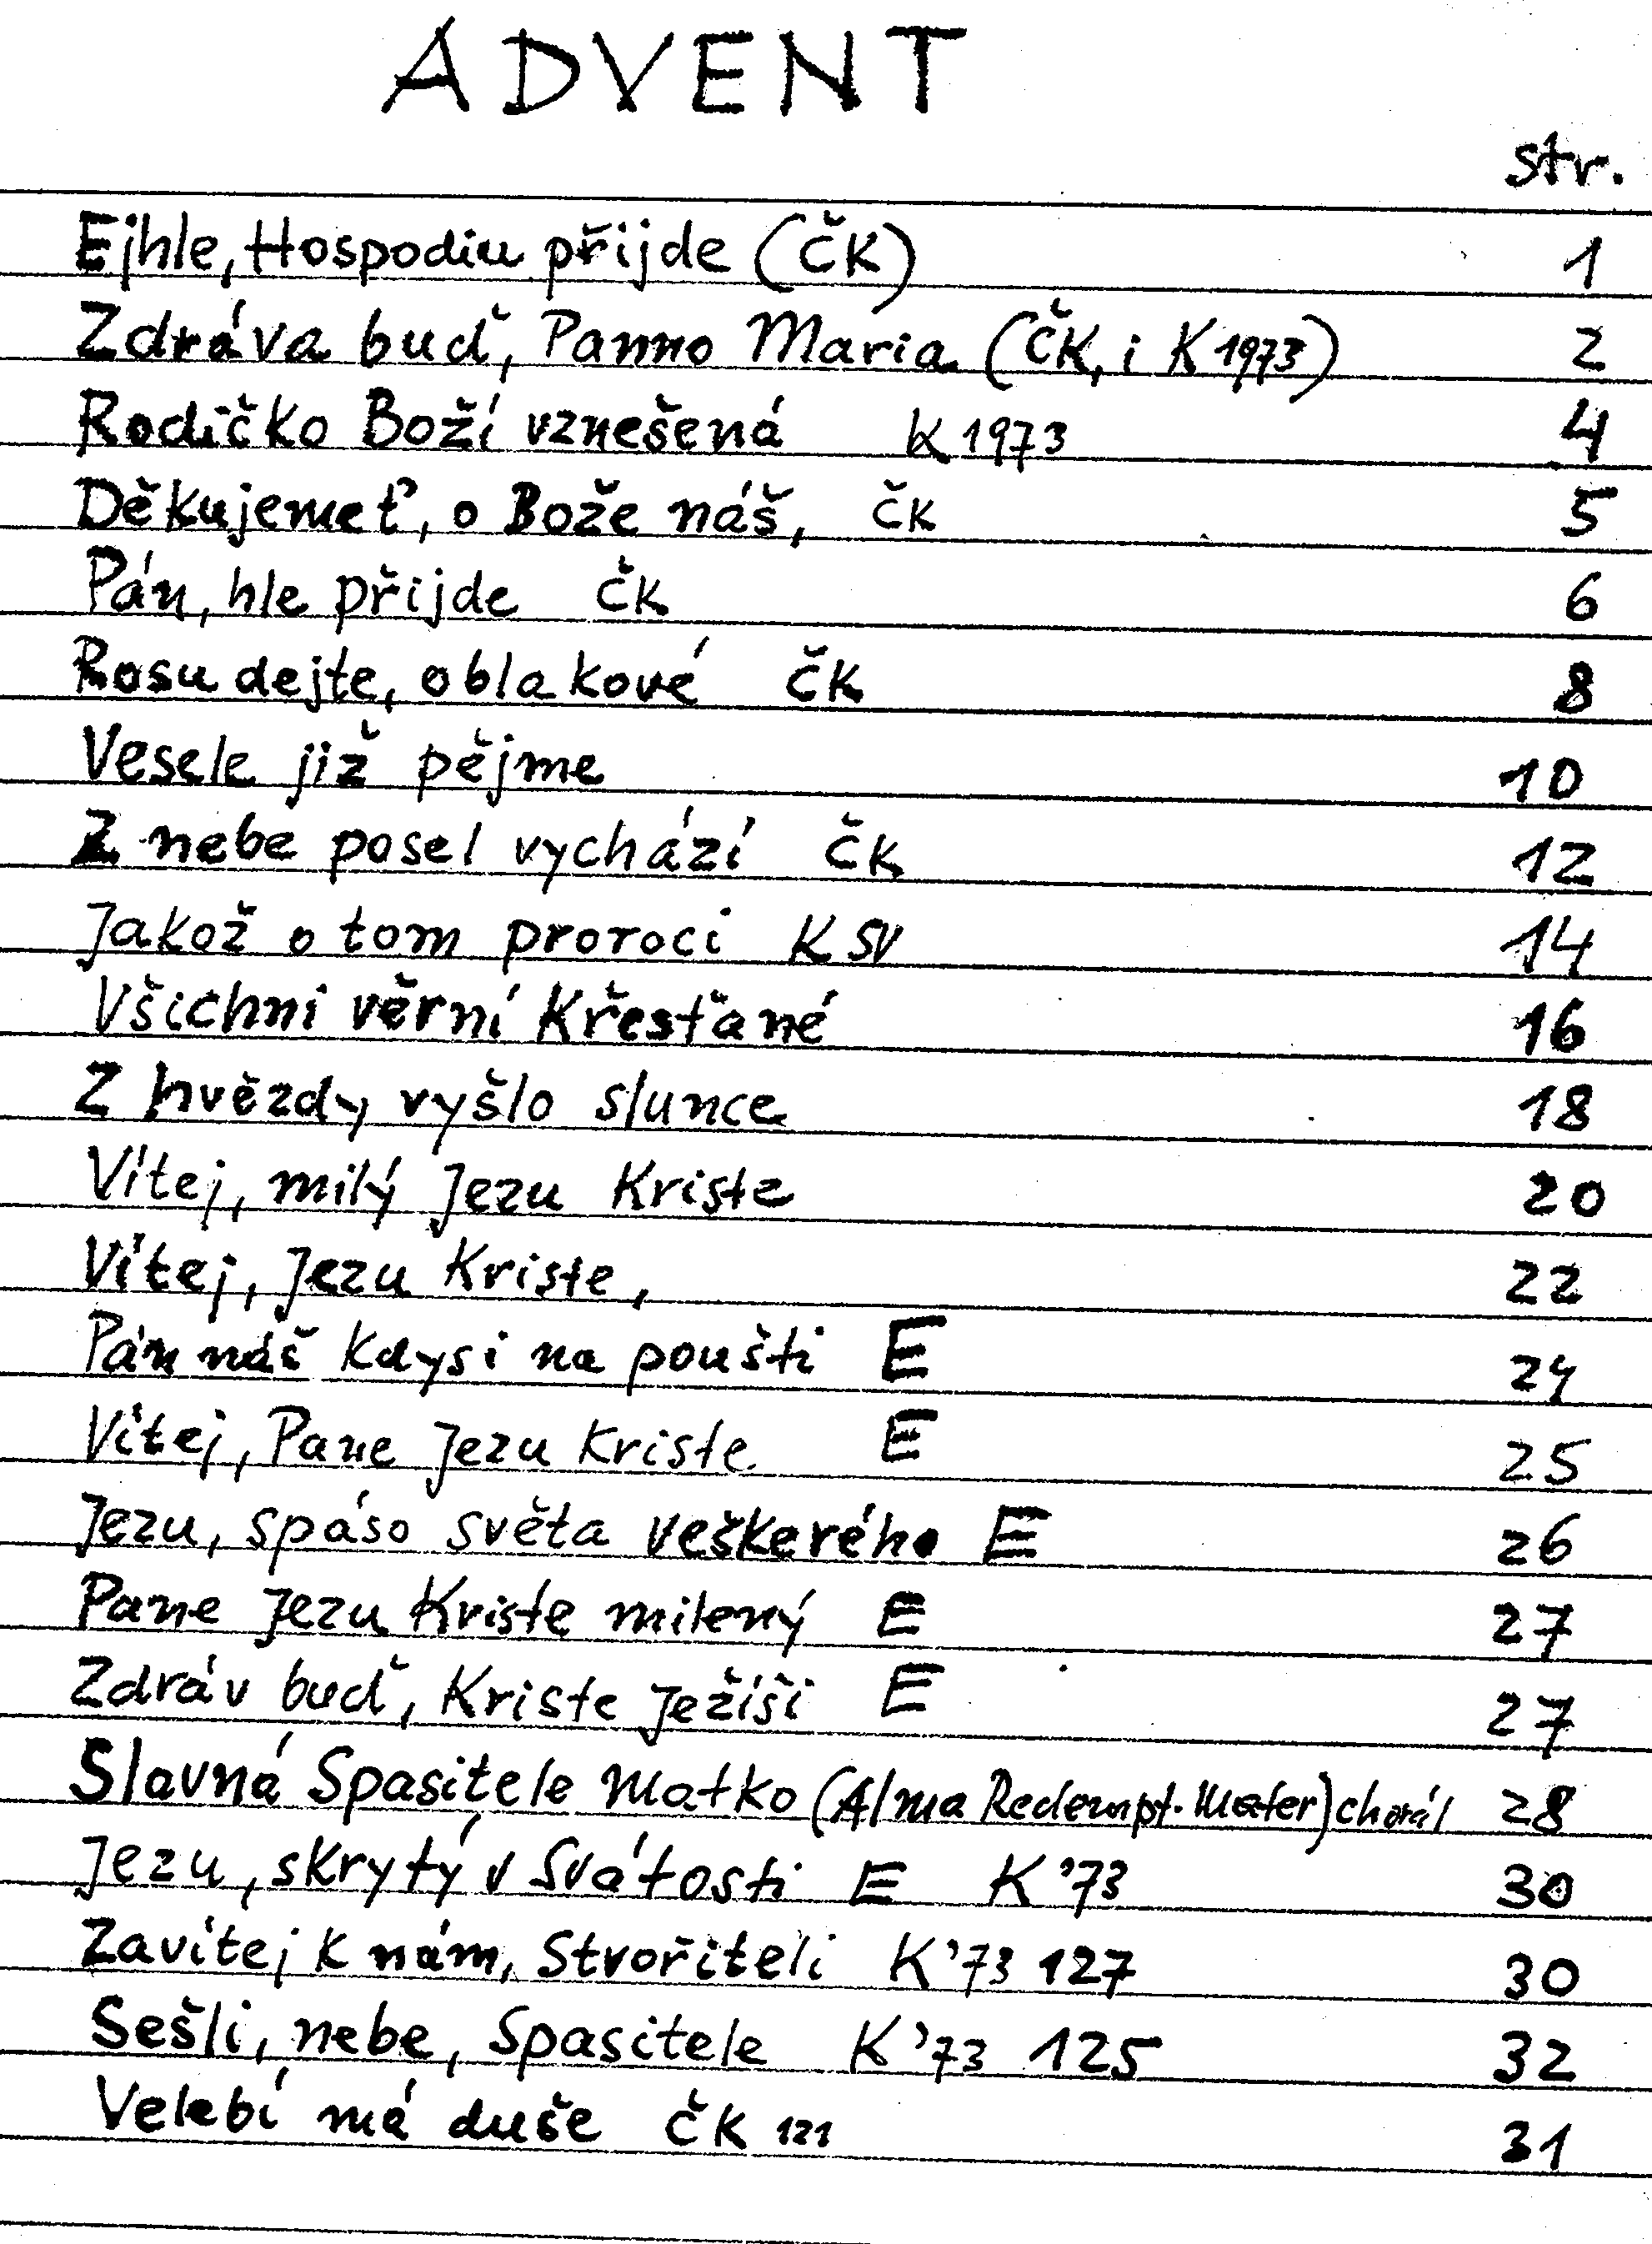 ADVENT
str.
Ejhle, Hospodin přijde (ČK) 1
Zdráva buď, Panno Maria (ČK, i K 1973) 2
Rodičko Boží vznešená K 1973 4
Děkujemeť, o Bože náš, ČK 5
Pán, hle přijde ČK 6
Rosu dejte, oblakové ČK 8
Vesele již pějme 10
Z nebe posel vychází ČK 12
Jakož o tom proroci K SV 14
Všichni věrní Křesťané 16
Z hvězdy vyšlo slunce 18
Vítej, milý Jezu Kriste 20
Vítej, Jezu Kriste, 22
Pán náš kdysi na poušti E 24
Vítej, Pane Jezu Kriste E 25
Jezu, spáso světa veškerého E 26
Pane Jezu Kriste milený E 27
Zdráv buď, Kriste Ježíši E 27
Slavná Spasitele Matko (Alma Redempt. Mater) chorál 28
Jezu, skrytý v Svátosti E K '73 30
Zavítej k nám, Stvořiteli K '73 127 30
Sešli, nebe, Spasitele K '73 125 32
Velebí má duše ČK 121 31